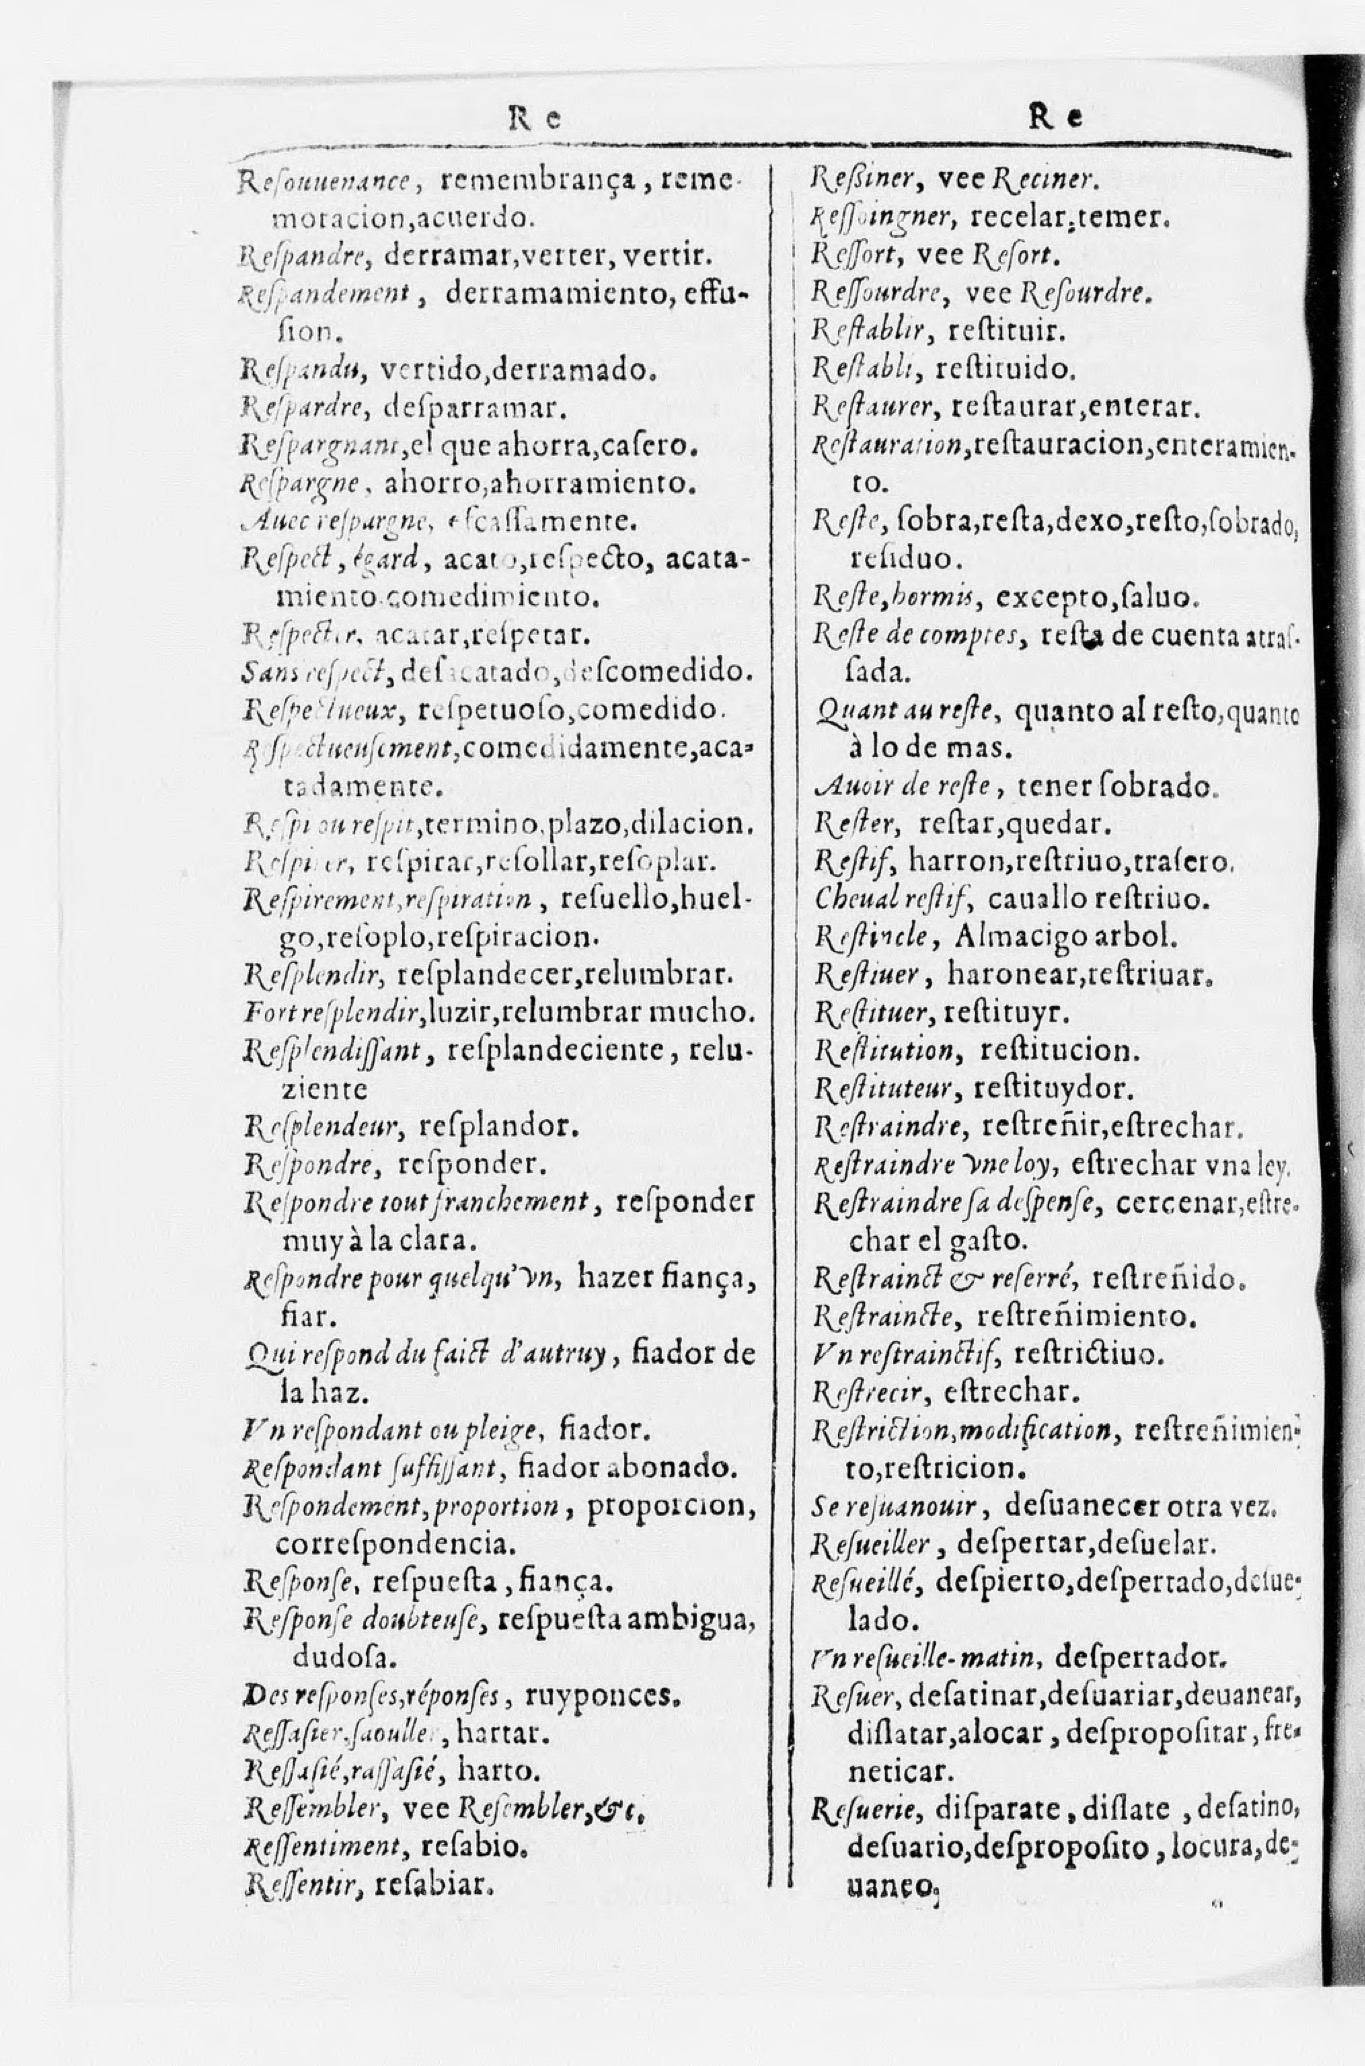 Re
Reſouuenance, remembrança, reme-
moracion, acuerdo.
Reſpandre, derramar, verter, vertir.
Reſpandement, derramamiento, effu-
ſion.
Reſpandu, vertido, derramado.
Reſpardre, deſparramar.
Reſpargnant, el que ahorra, caſero.
Reſpargne, ahorro, ahorramiento.
Auec reſpargne, eſcaſſamente.
Reſpect, égard, acato, reſpecto, acata-
miento. comedimiento.
Reſpecter, acatar, reſpetar.
Sans reſpect, deſacatado, deſcomedido.
Reſpectueux, reſpetuoſo, comedido.
Reſpectueuſement, comedidamente, aca-
tadamente.
Reſpi ou reſpit, termino, plazo, dilacion.
Reſpirer, reſpirar, reſollar, reſoplar.
Reſpirement, reſpiration, reſuello, huel-
go, reſoplo, reſpiracion.
Reſplendir, reſplandecer, relumbrar.
Fort reſplendir, luzir, relumbrar mucho.
Reſplendiſſant, reſplandeciente, relu-
ziente
Reſplendeur, reſplandor.
Reſpondre, reſponder.
Reſpondre tout franchement, reſponder
muy à la clara.
Reſpondre pour quelqu'vn, hazer fiança,
fiar.
Qui reſpond du faict d'autruy, fiador de
la haz.
Vn reſpondant ou pleige, fiador.
Reſpondant ſuffiſſant, fiador abonado.
Reſpondement, proportion, proporcion,
correſpondencia.
Reſponſe, reſpueſta, fiança.
Reſponſe doubteuſe, reſpueſta ambigua,
dudoſa.
Des reſponſes, réponſes, ruyponces.
Reſſaſier, ſaouller, hartar.
Reſſaſié, raſſaſié, harto.
Reſſembler, vee Reſembler, &c.
Reſſentiment, reſabio.
Reſſentir, reſabiar.
Re
Reßiner, vee Reciner.
Reſſoingner, recelar, temer.
Reſſort, vee Reſort.
Reſſourdre, vee Reſourdre.
Reſtablir, reſtituir.
Reſtabli, reſtituido.
Reſtaurer, reſtaurar, enterar.
Reſtauration, reſtauracion, enteramien-
to.
Reſte, ſobra, reſta, dexo, reſto, ſobrado,
reſiduo.
Reſte, hormis, excepto, ſaluo.
Reſte de comptes, reſta de cuenta atraſ-
ſada.
Quant au reſte, quanto al reſto, quanto
à lo de mas.
Auoir de reſte, tener ſobrado.
Reſter, reſtar, quedar.
Reſtif, harron, reſtriuo, traſero.
Cheual reſtif, cauallo reſtriuo.
Reſtincle, Almacigo arbol.
Reſtiuer, haronear, reſtriuar.
Reſtituer, reſtituyr.
Reſtitution, reſtitucion.
Reſtituteur, reſtituydor.
Reſtraindre, reſtreñir, eſtrechar.
Reſtraindre vne loy, eſtrechar vna ley.
Reſtraindre ſa deſpenſe, cercenar, eſtre-
char el gaſto.
Reſtrainct & reſerré, reſtreñido.
Reſtraincte, reſtreñimiento.
Vn reſtrainctif, reſtrictiuo.
Reſtrecir, eſtrechar.
Reſtriction, modification, reſtreñimien-
to, reſtricion.
Se reſuanouir, deſuanecer otra vez.
Reſueiller, deſpertar, deſuelar.
Reſueillé, deſpierto, deſpertado, deſue-
lado.
Vn reſueille-matin, deſpertador.
Reſuer, deſatinar, deſuariar, deuanear,
diſlatar, alocar, deſpropoſitar, fre-
neticar.
Reſuerie, diſparate, diſlate, deſatino,
deſuario, deſpropoſito, locura, de-
uaneo,